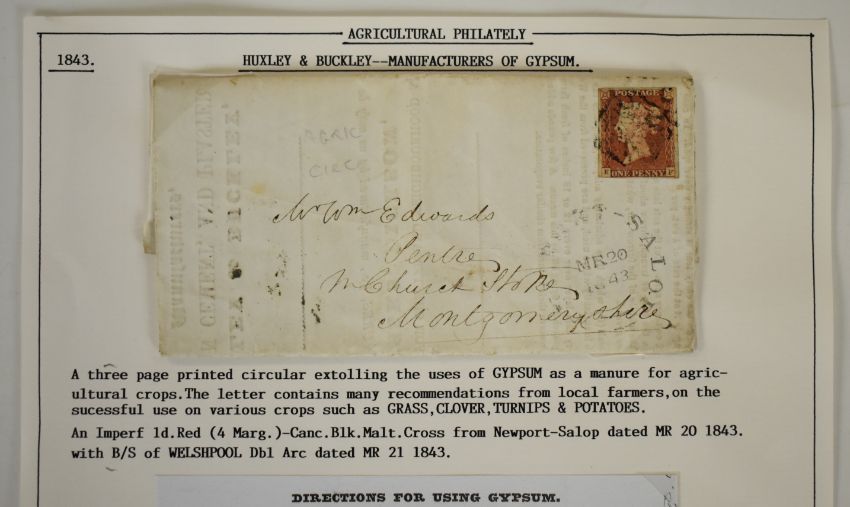 AGRICULTURAL PHILATELY
1843.
HUXLEY & BUCKLEY--MANUFACTURERS OF GYPSUM.
AGRIC
CIRC
POSTAGE
ONE PENNY
Mr Wm Edwards
Pentre
Nr Church Stoke
Montgomeryshire
T-SALOP
MR20
1843
A three page printed circular extolling the uses of GYPSUM as a manure for agric-
ultural crops.The letter contains many recommendations from local farmers,on the
sucessful use on various crops such as GRASS,CLOVER,TURNIPS & POTATOES.
An Imperf 1d.Red (4 Marg.)-Canc.Blk.Malt.Cross from Newport-Salop dated MR 20 1843.
with B/S of WELSHPOOL Dbl Arc dated MR 21 1843.
DIRECTIONS FOR USING GYPSUM.